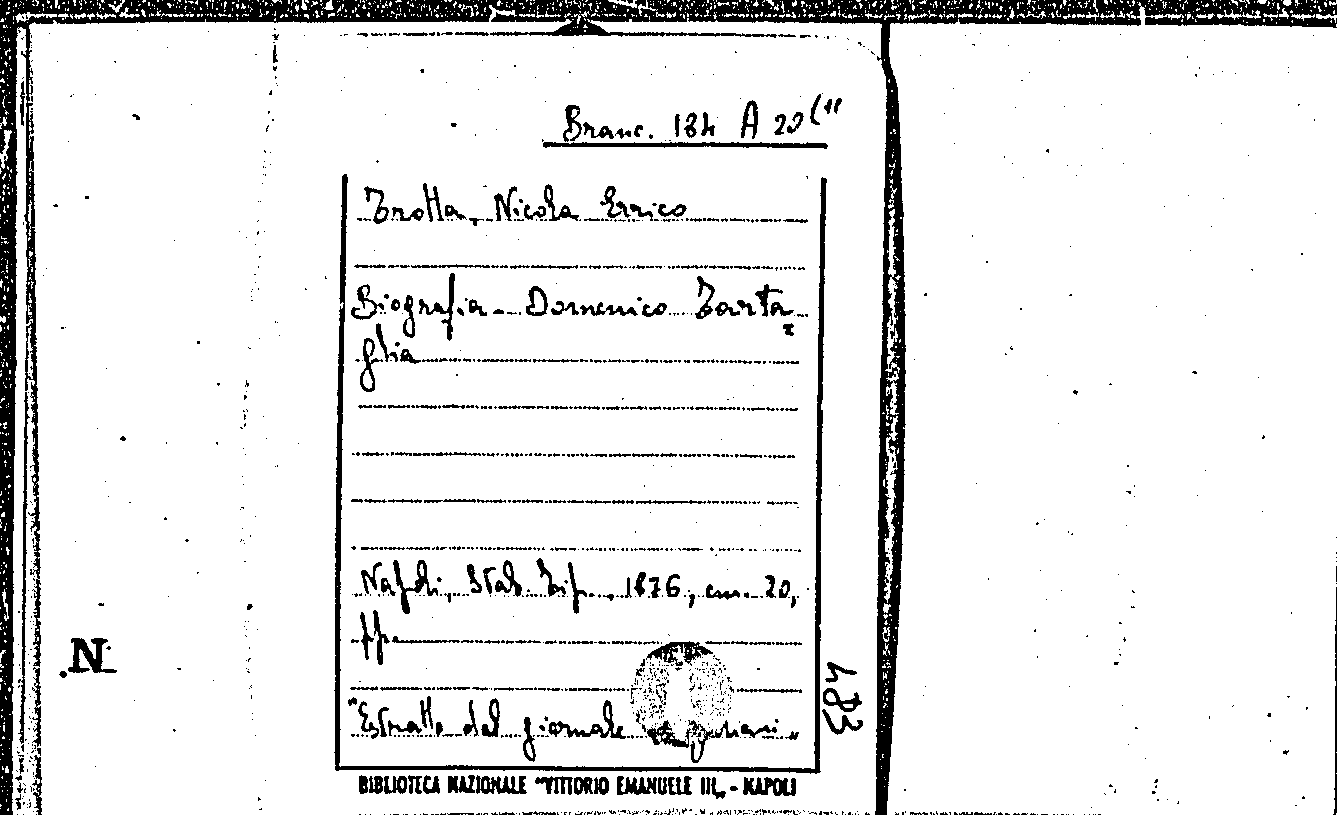 Branc. 184 A 20(11
Trotta, Nicola Errico
Biografia - Domenico Tarta=
glia
Napoli, Stab. Tip., 1876, cm. 20,
pp.
"Estratto dal giornale
BIBLIOTECA NAZIONALE "VITTORIO EMANUELE III„ - NAPOLI
483
N